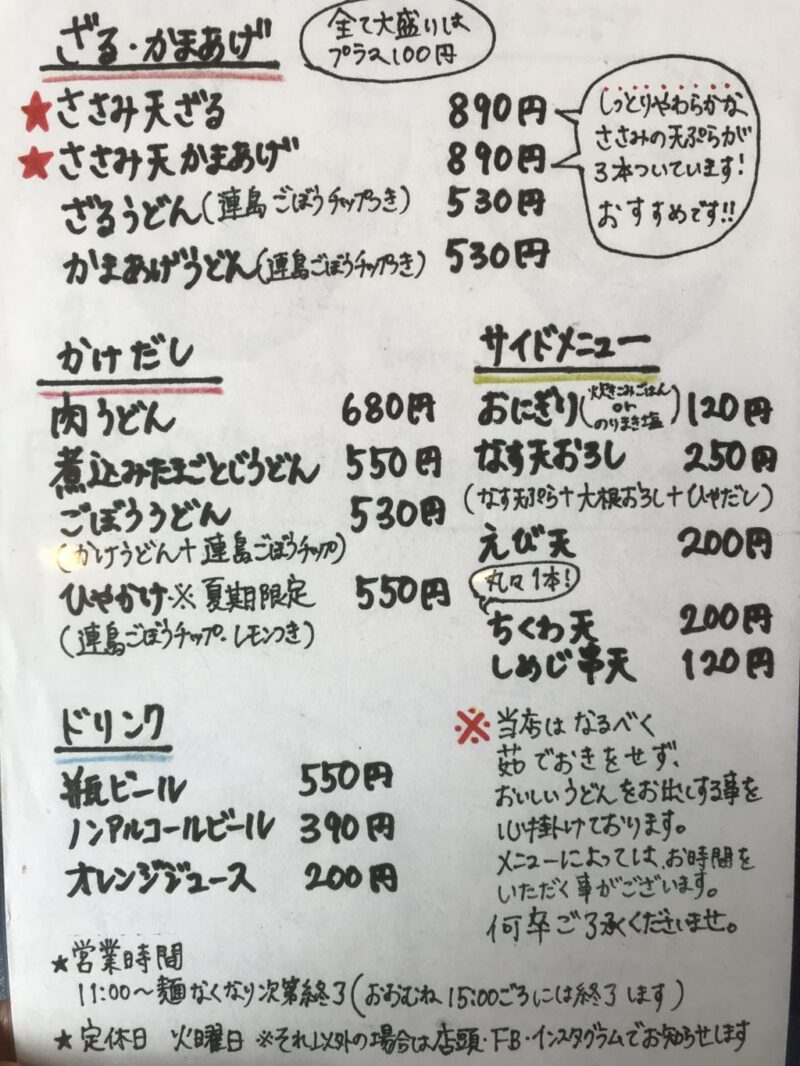 ざる・かまあげ
全て大盛りは
プラス100円
★ささみ天ざる 890円
★ささみ天かまあげ 890円
しっとりやわらかな
ささみの天ぷらが
3本ついています!
おすすめです!!
ざるうどん(連島ごぼうチップつき) 530円
かまあげうどん(連島ごぼうチップつき) 530円
かけだし
肉うどん 680円
煮込みたまごとじうどん 550円
ごぼううどん 530円
(かけうどん+連島ごぼうチップ)
ひやかけ※夏期限定 550円
(連島ごぼうチップ・レモンつき)
サイドメニュー
おにぎり(炊きこみごはん or のりまき塩) 120円
なす天おろし 250円
(なす天ぷら+大根おろし+ひやだし)
えび天 200円
丸々1本!
ちくわ天 200円
しめじ串天 120円
ドリンク
瓶ビール 550円
ノンアルコールビール 390円
オレンジジュース 200円
※当店はなるべく
茹でおきをせず、
おいしいうどんをお出しする事を
心掛けております。
メニューによっては、お時間を
いただく事がございます。
何卒ご了承くださいませ。
★営業時間
11:00〜麺なくなり次第終了(おおむね15:00ごろには終了します)
★定休日 火曜日 ※それ以外の場合は店頭・FB・インスタグラムでお知らせします